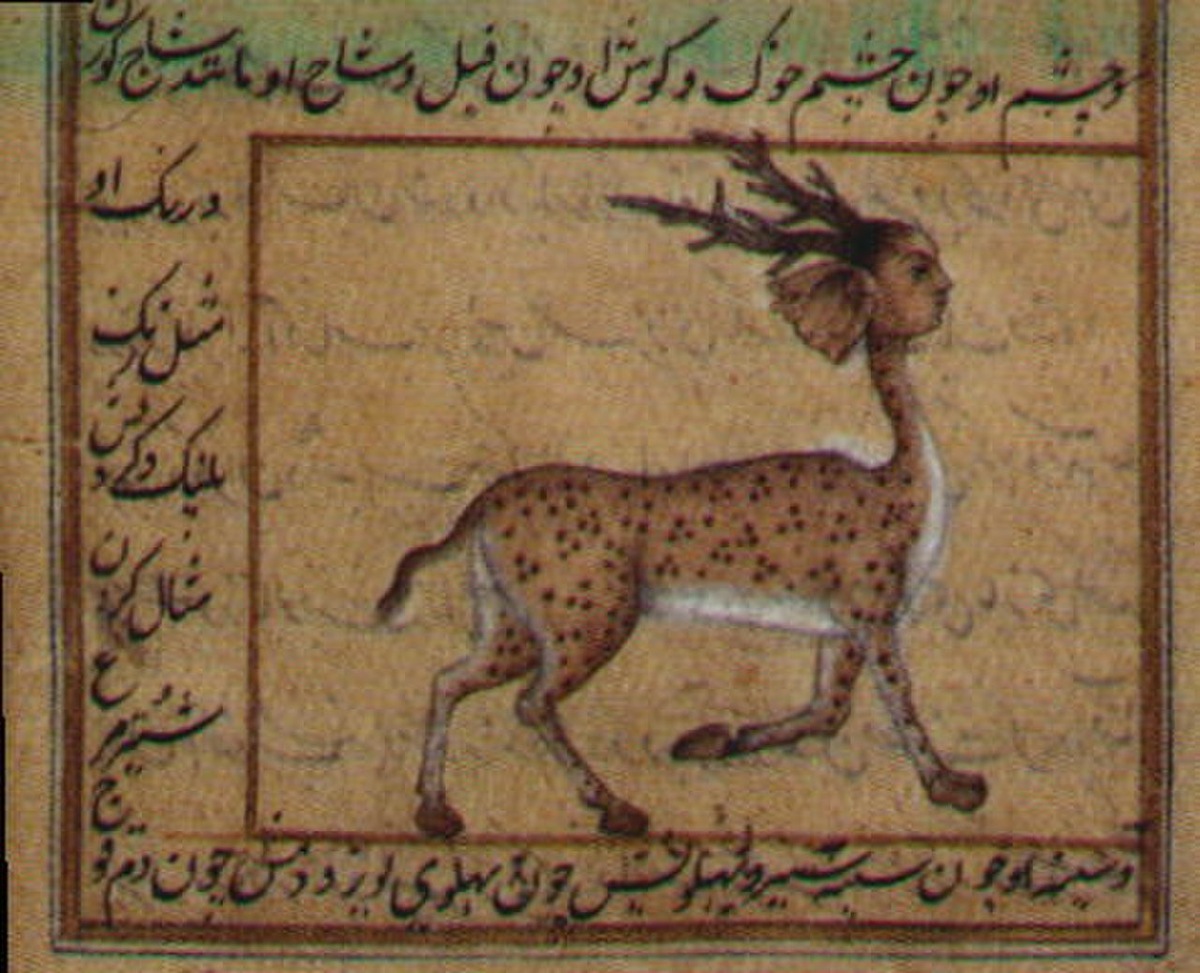 وچشم او چون چشم خوک و کوش او چون فیل و شاخ او مانند شاخ کوزن
و رنک او
مثل رنک
پلنک و کردنش
مثال کردن
شترمرغ
و سینهٔ او چون سینه شیر و پهلویش چون پهلوی یوز و دمش چون دم قوچ